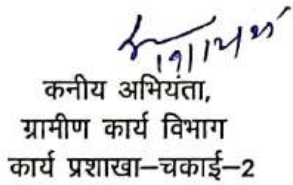 कनीय अभियंता,
ग्रामीण कार्य विभाग
कार्य प्रशाखा–चकाई–2